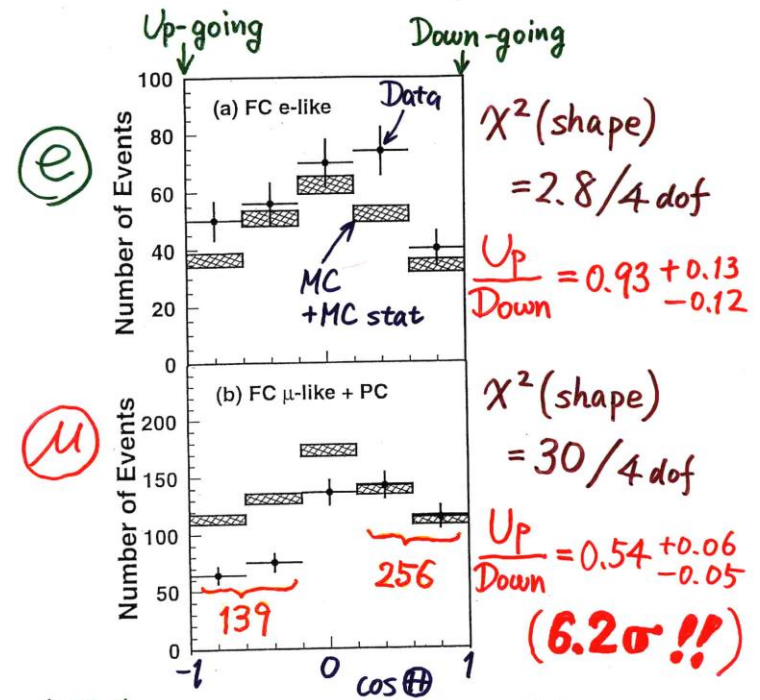 Up-going
Down-going
e
100
80
60
40
20
0
Number of Events
(a) FC e-like
Data
MC
+MC stat
χ²(shape)
=2.8/4 dof
Up/Down = 0.93 +0.13 −0.12
μ
200
150
100
50
0
Number of Events
(b) FC μ-like + PC
139
256
χ²(shape)
=30/4 dof
Up/Down = 0.54 +0.06 −0.05
(6.2σ !!)
-1
0
1
cos Θ